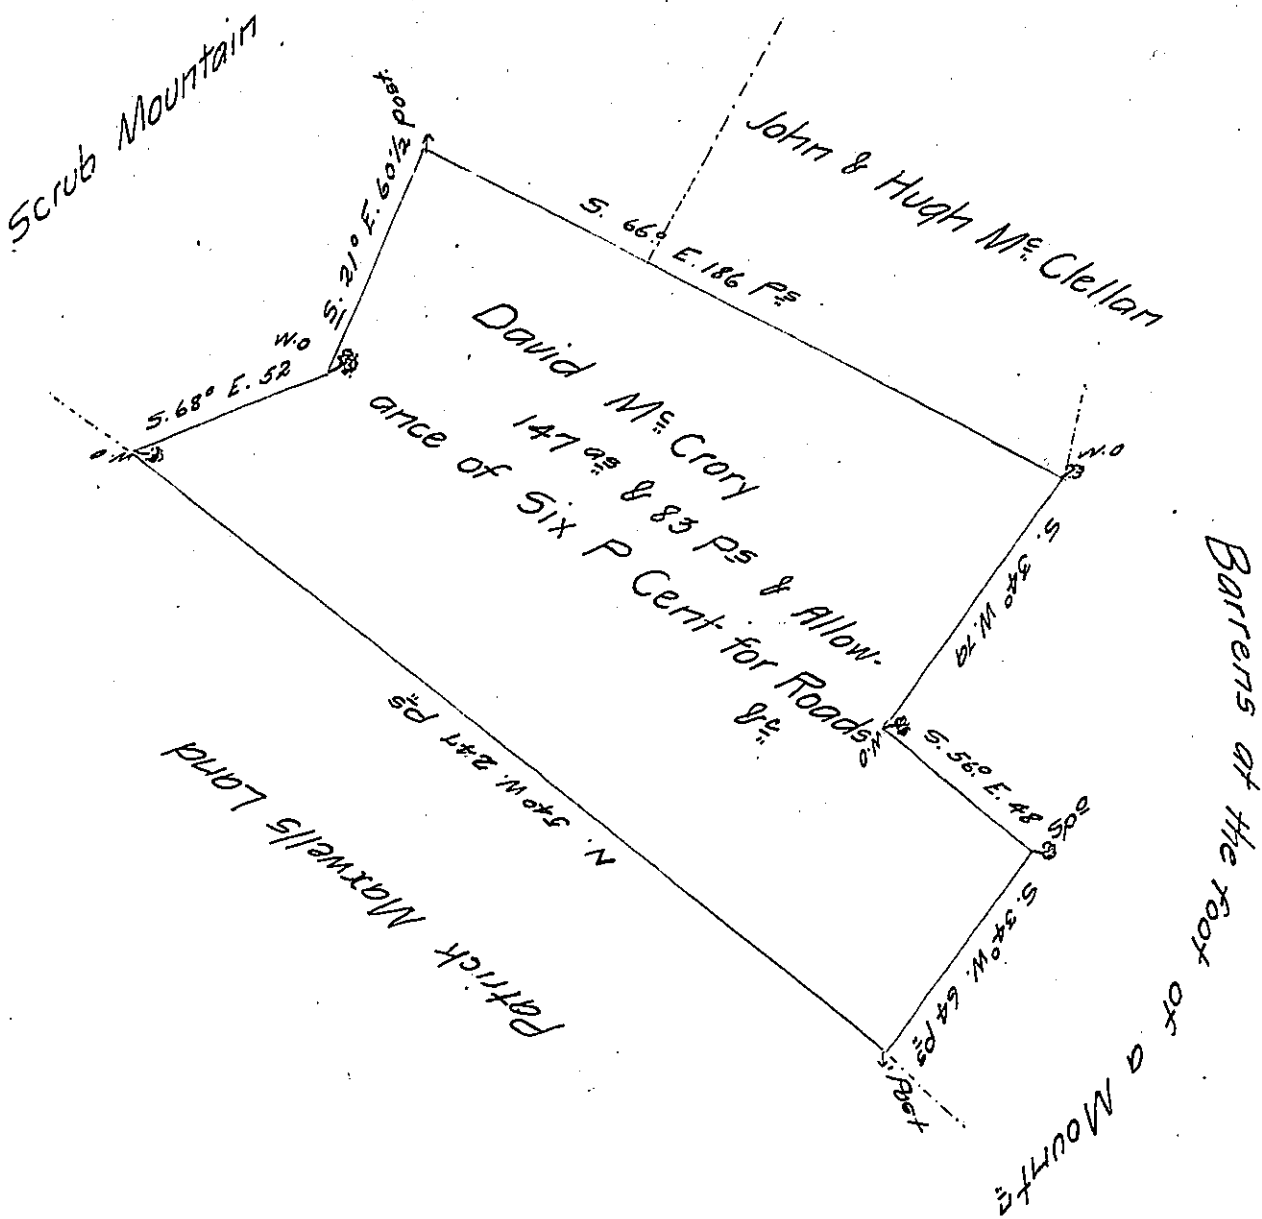 Scrub Mountain
John & Hugh Mc Clellan
S. 21° E. 60½ Post.
S. 66° E. 186 Ps
W.O
S. 68° E. 52
W.O
David Mc Crory
147 as & 83 Ps & Allow-
ance of Six P Cent for Roads
&c
W.O
S. 34° W. 79
W.O
S. 56° E. 48
S. 34° W. 64 Ps
Post
N. 54° W. 247 Ps
Patrick Maxwells Land
Barrens at the foot of a Mountn